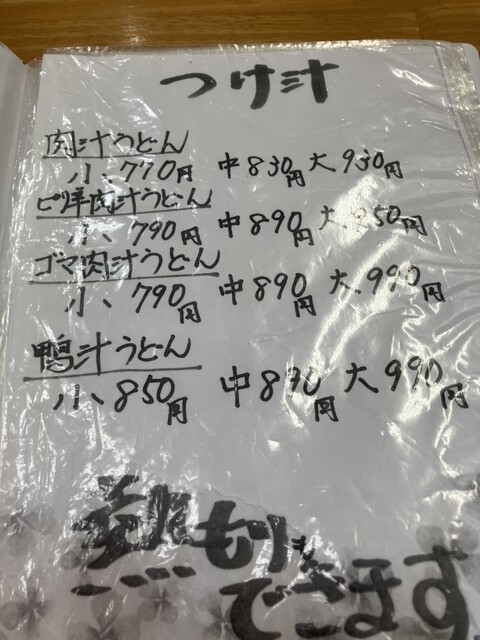 つけ汁
肉汁うどん
小、770円 中830円 大930円
ピリ辛肉汁うどん
小、790円 中890円 大、950円
ゴマ肉汁うどん
小、790円 中890円 大、990円
鴨汁うどん
小、850円 中890円 大990円
もり
できます